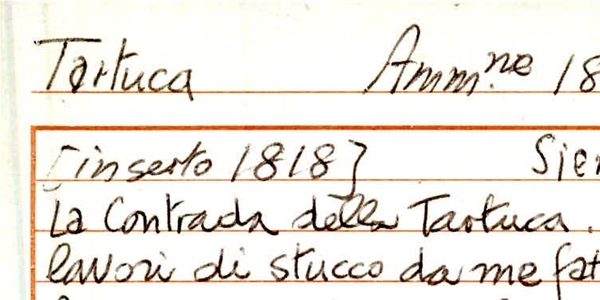 Tartuca Amm.ne 18
[inserto 1818] Sie
La Contrada della Tartuca.
lavori di stucco da me fat